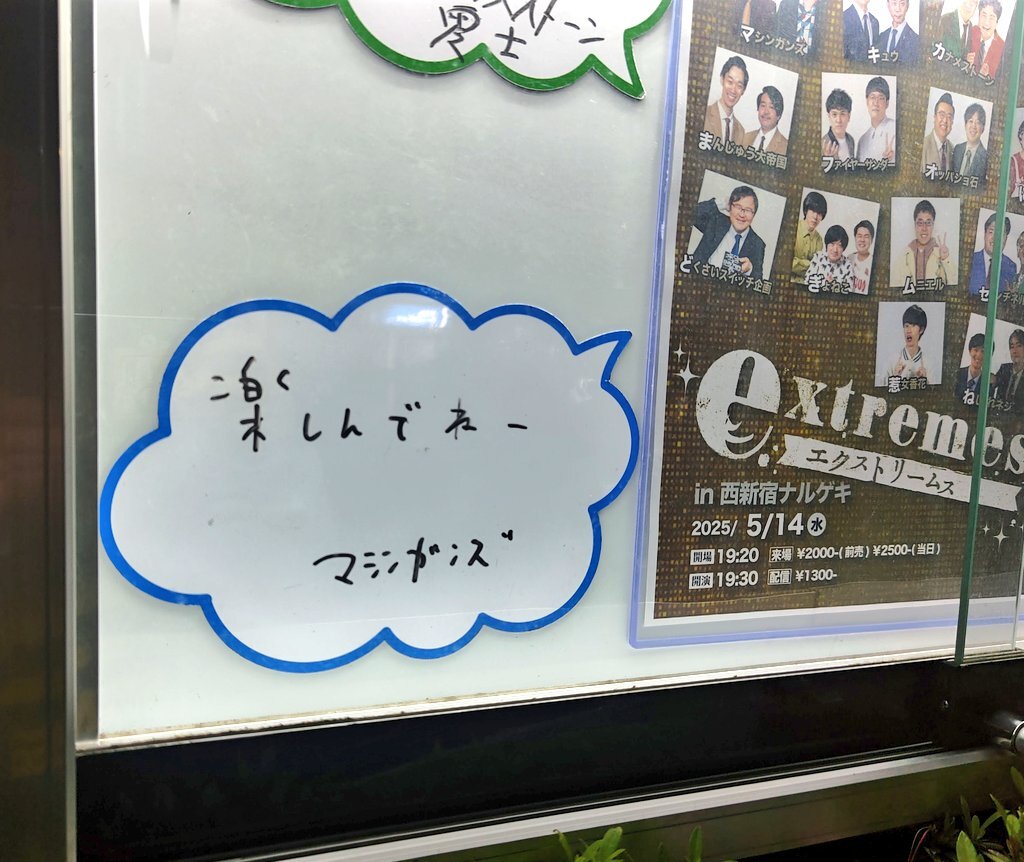 マシンガンズ
キュウ
カナメストーン
まんじゅう大帝国
ファイヤーサンダー
オッパショ石
どくさいスイッチ企画
ぎょねこ
ムニエル
惹女香花
extremes
エクストリームス
in 西新宿ナルゲキ
2025/ 5/14 水
開場 19:20 来場 ¥2000-(前売) ¥2500-(当日)
開演 19:30 配信 ¥1300-
楽しんでねー
マシンガンズ